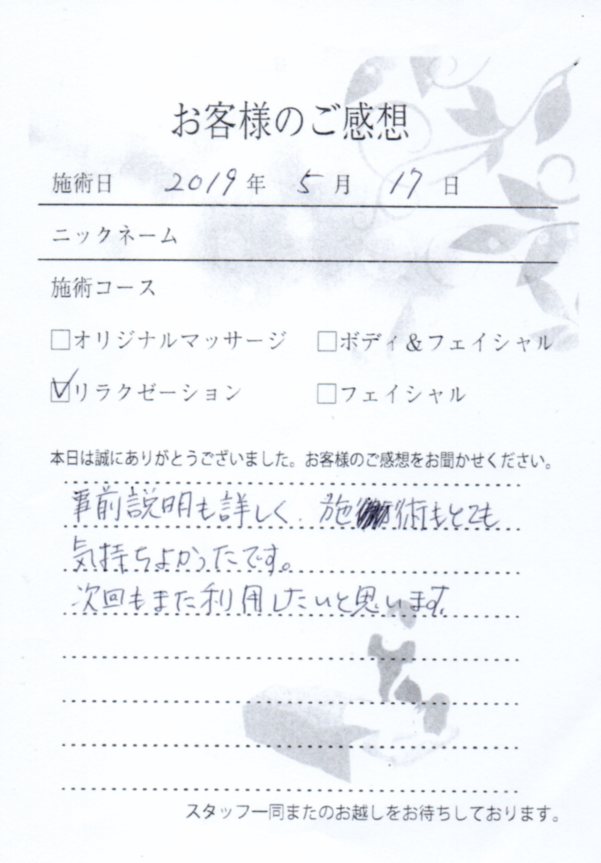 お客様のご感想
施術日 2019年 5月 17日
ニックネーム
施術コース
□オリジナルマッサージ □ボディ&フェイシャル
☑リラクゼーション □フェイシャル
本日は誠にありがとうございました。お客様のご感想をお聞かせください。
事前説明も詳しく、施術もとても
気持ちよかったです。
次回もまた利用したいと思います。
スタッフ一同またのお越しをお待ちしております。